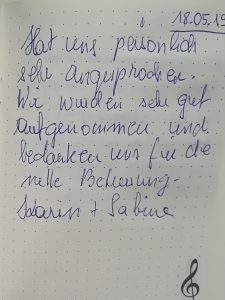 18.05.19
Hat uns persönlich
sehr angesprochen.
Wir wurden sehr gut
aufgenommen und
bedanken uns für die
nette Betreuung.
+ Sabine